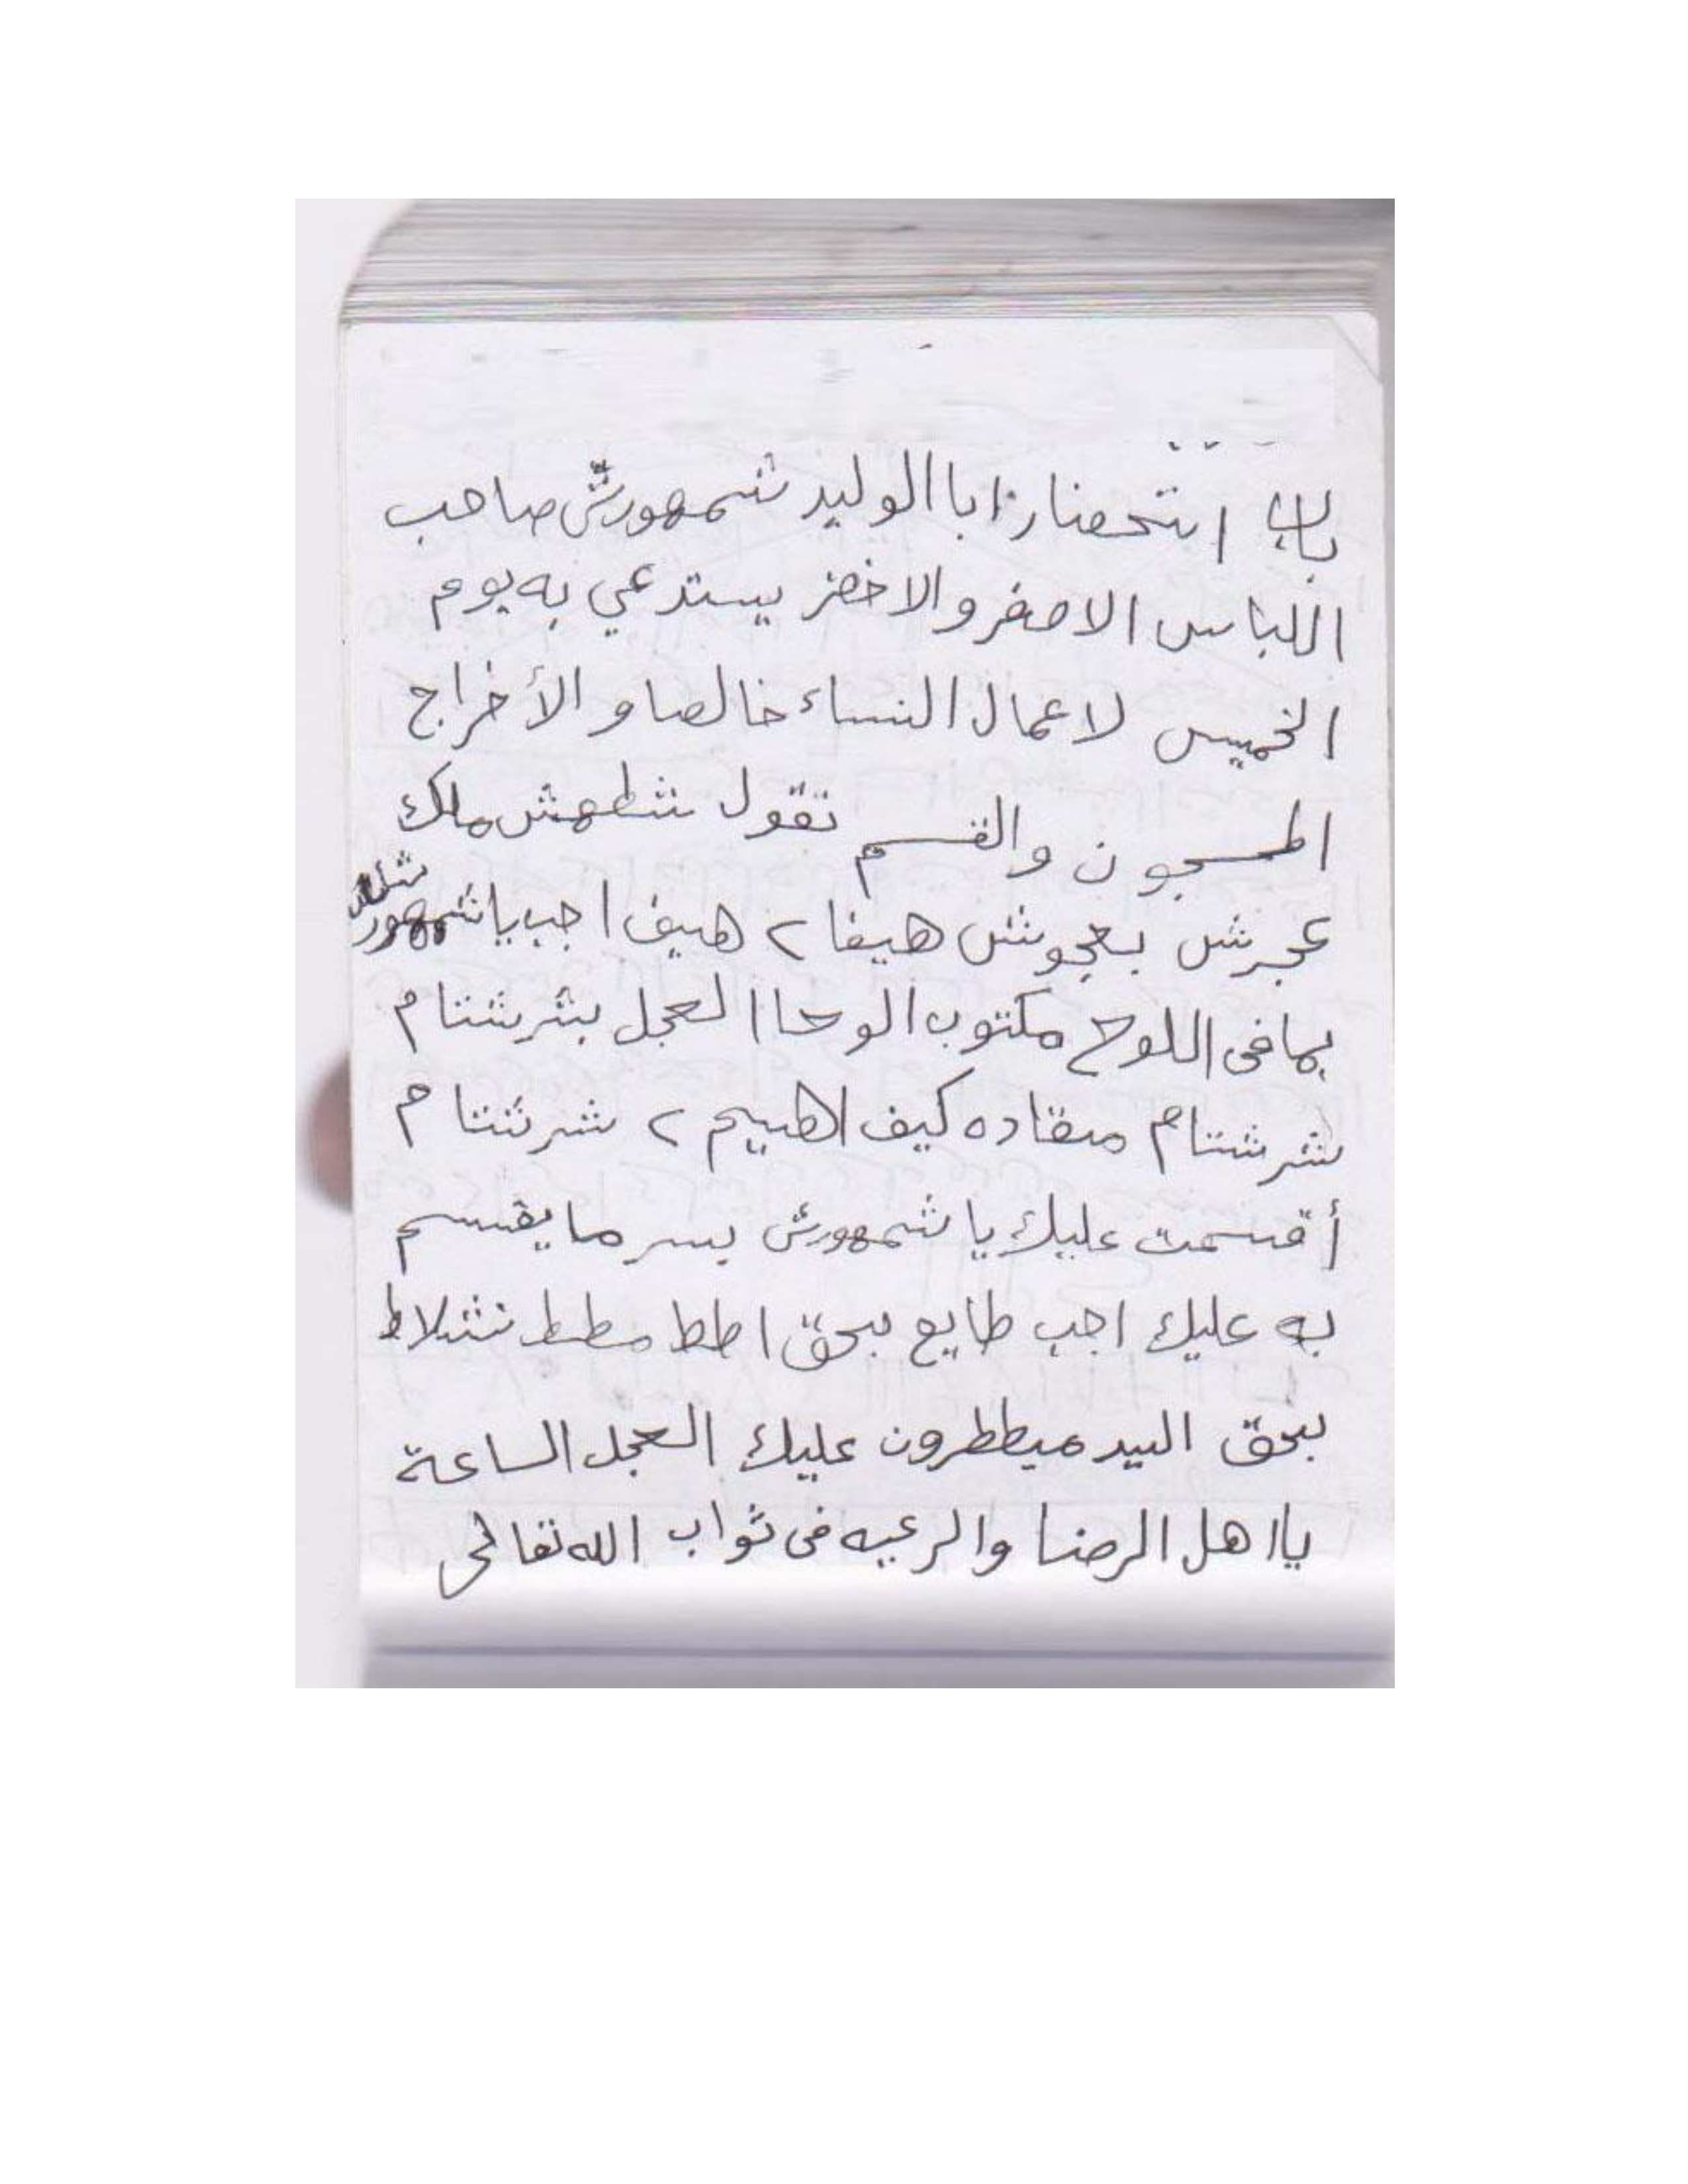 باب استحضار ابا الوليد شمهورش صاحب
اللباس الاصفر والاخضر يستدعي به يوم
الخميس لاعمال النساء خالصا و الأخراج
المسجون والقسم تقول شطهش ملك
عجرش بعجوش هيفا ٢ هيف اجب يا شمهورش
بما فى اللوح مكتوب الوحا العجل بشرشتام
شرشتام مقاده كيف اهيم ٢ شرشتام
أقسمت عليك يا شمهورش بسر ما يقسم
به عليك اجب طايع بحق اطط مطط شلاط
بحق السيد ميططرون عليك العجل الساعة
يا اهل الرضا والرعيه فى ثواب الله تعالى